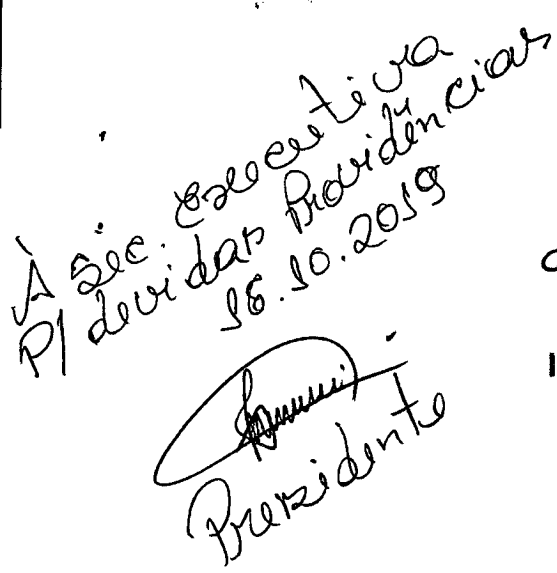 À Sec. Executiva
P/ devidas Providências
16.10.2019
Presidente